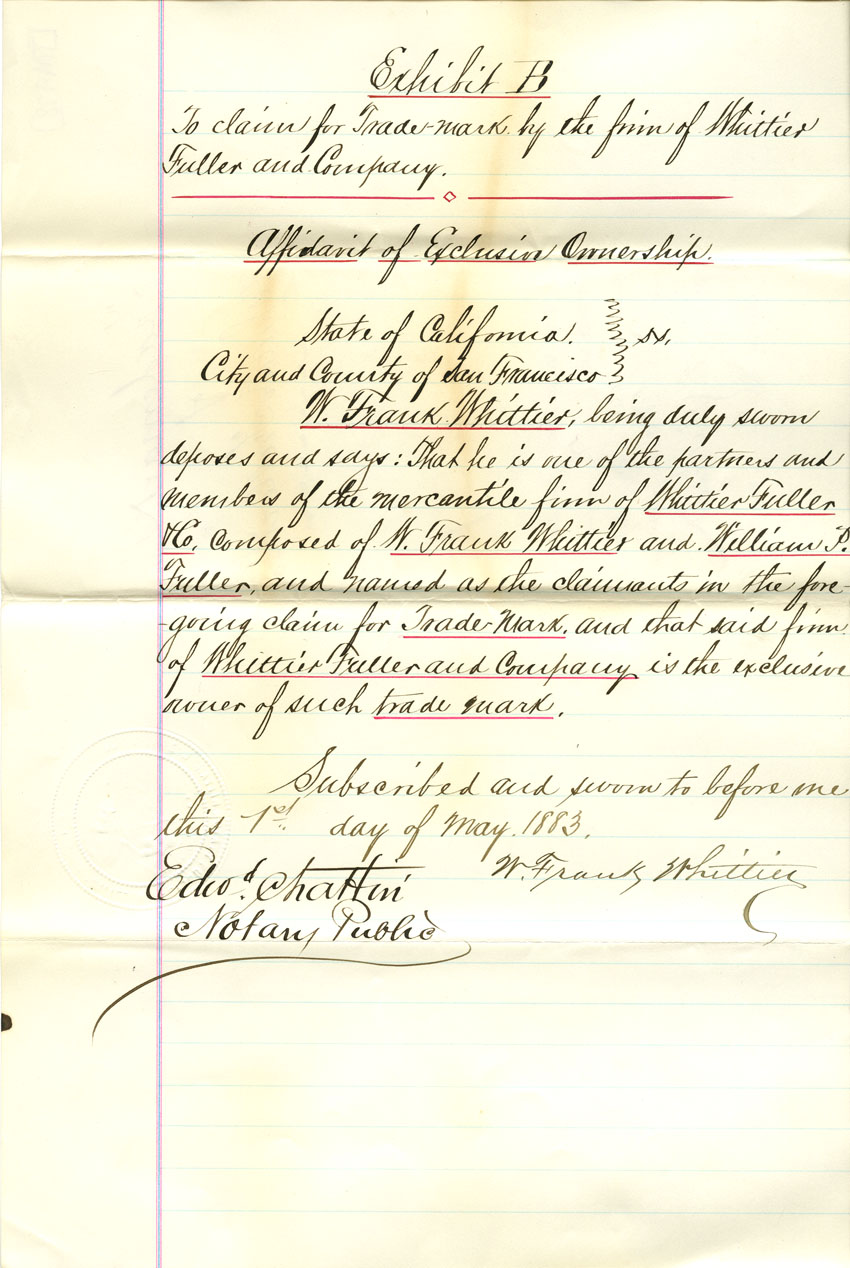 Exhibit B
To claim for Trade-mark by the firm of Whittier
Fuller and Company.
Affidavit of Exclusive Ownership.
State of California. } ss.
City and County of San Francisco
W. Frank Whittier, being duly sworn
deposes and says: That he is one of the partners and
members of the mercantile firm of Whittier Fuller
& Co. composed of W. Frank Whittier and William P.
Fuller, and named as the claimants in the fore-
-going claim for Trade-Mark. and that said firm
of Whittier Fuller and Company is the exclusive
owner of such trade mark.
Subscribed and sworn to before me
this 1st day of May. 1883.
W. Frank Whittier
Edwd. Chattin
Notary Public